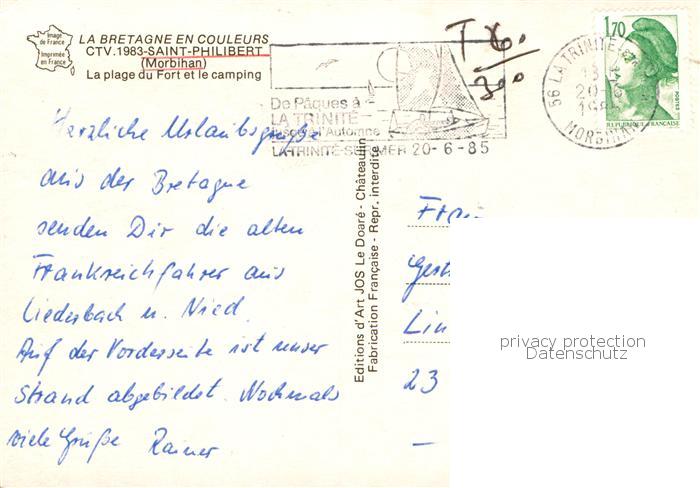 Image
de France
Imprimée
en France
LA BRETAGNE EN COULEURS
CTV.1983-SAINT-PHILIBERT
(Morbihan)
La plage du Fort et le camping
De Pâques à
LA TRINITÉ
jusqu'à l'Automne
LA TRINITÉ-SUR-MER 20-6-85
T
300
56 LA TRINITÉ
20
MORBIHAN
1,70
POSTES
REPUBLIQUE FRANÇAISE
Herzliche Urlaubsgrüße
aus der Bretagne
senden Dir die alten
Frankreichfahrer aus
Liederbach u. Nied.
Auf der Vorderseite ist unser
Strand abgebildet. Nochmals
viele Grüße Rainer
Editions d'Art JOS Le Doaré - Châteaulin
Fabrication Française - Repr. interdite
23
privacy protection
Datenschutz